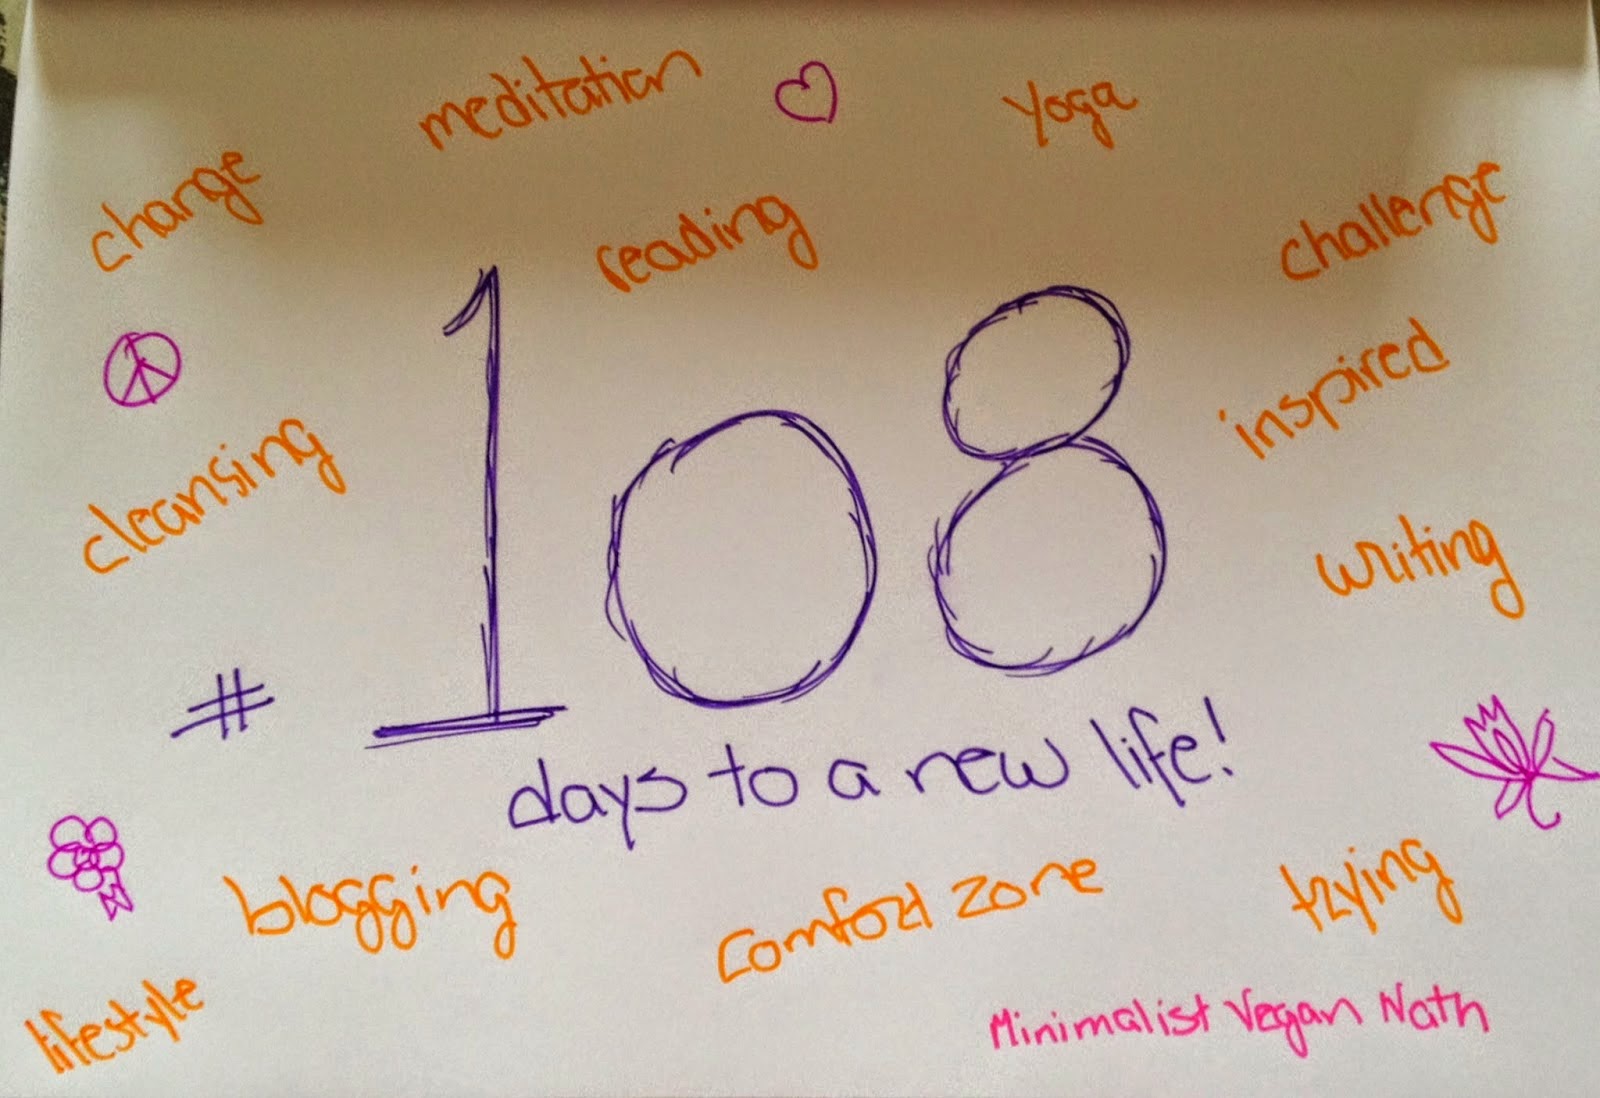 meditation
yoga
change
reading
challenge
inspired
cleansing
writing
# 108
days to a new life!
blogging
comfort zone
trying
lifestyle
Minimalist Vegan Nath